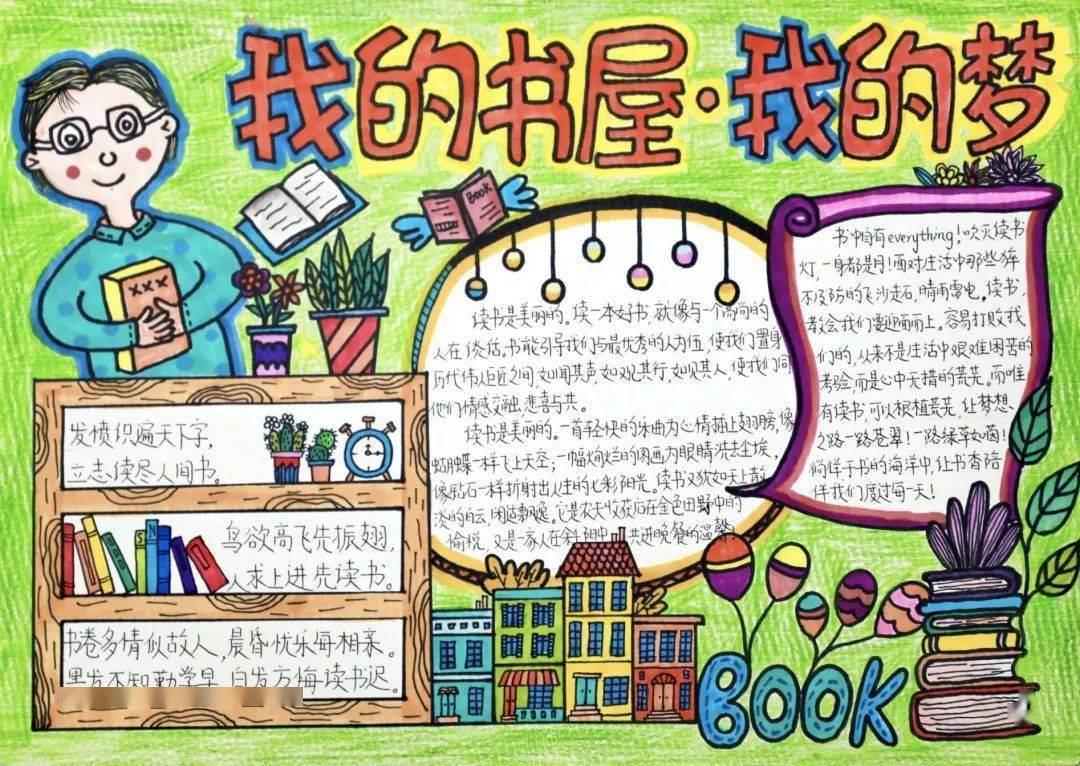 我的书屋·我的梦
BOOK
XXX
发愤识遍天下字,
立志读尽人间书。
鸟欲高飞先振翅,
人求上进先读书。
书卷多情似故人,晨昏忧乐每相亲。
黑发不知勤学早,白发方悔读书迟。
读书是美丽的。读一本好书,就像与一个高尚的
人在谈话,书能引导我们与最优秀的人为伍,使我们置身
历代伟人巨匠之间,如闻其声,如观其行,如见其人,使我们同
他们情感交融,悲喜与共。
读书是美丽的。一首轻快的乐曲为心情插上翅膀,像
蝴蝶一样飞上天空;一幅绚烂的图画为眼睛洗去尘埃,
像钻石一样折射出人生的七彩阳光。读书又犹如天上散
淡的白云,闲适飘逸。它是农夫收获后在金色田野中的
愉悦,又是一家人在斜阳中共进晚餐的温馨
书中自有everything!吹灭读书
灯,一身都是月!面对生活中那些猝
不及防的飞沙走石,晴雨雷电。读书,
教会我们要迎面而上。容易打败我
们的,从来不是生活中艰难困苦的
考验,而是心中无措的荒芜。而唯
有读书,可以根植荒芜,让梦想
之路一路苍翠!一路绿草如茵!
徜徉于书的海洋中,让书香陪
伴我们度过每一天!
BOOK